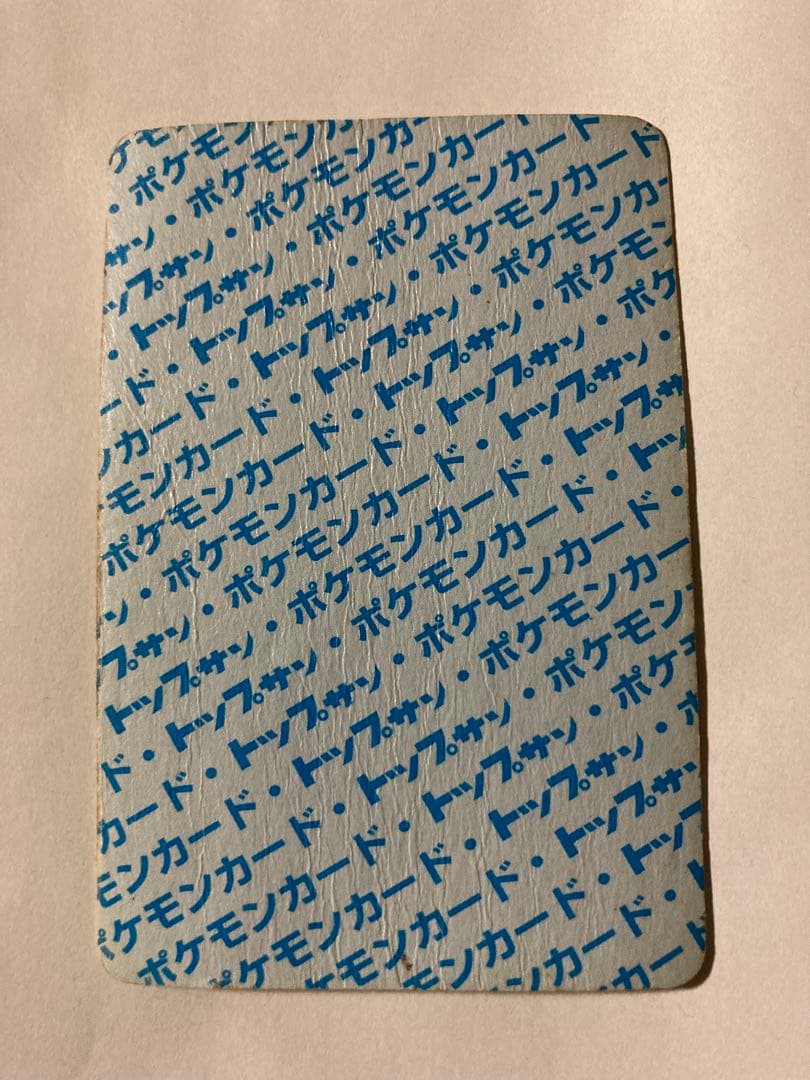 ポケモ
・ポケモンカ
サン・ポケモンカ
ップサン・ポケモンカー
・トップサン・ポケモンカード
ード・トップサン・ポケモンカード
ンカード・トップサン・ポケモンカー
モンカード・トップサン・ポケモンカ
ポケモンカード・トップサン・ポケモン
・ポケモンカード・トップサン・ポケ
ン・ポケモンカード・トップサン・
プサン・ポケモンカード・トップサ
トップサン・ポケモンカード・トッ
ド・トップサン・ポケモンカード・
カード・トップサン・ポケモンカー
モンカード・トップサン・ポケモンカ
ケモンカード・トップサン・ポケモ
ポケモンカード・トップサン・ポ
ケモンカード・トップサン
モンカード・トップ
モンカード・ト
ンカード・